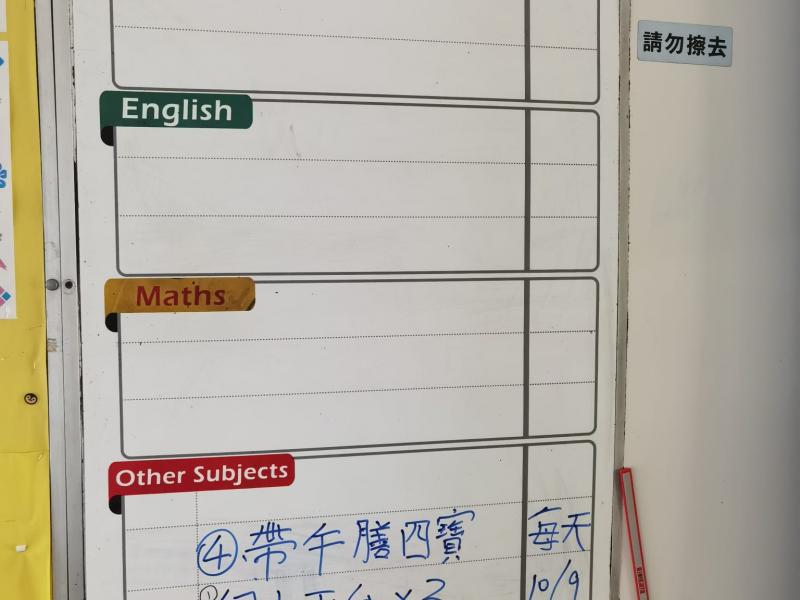 請勿擦去
English
Maths
Other Subjects
④ 帶午膳四寶 每天
10/9